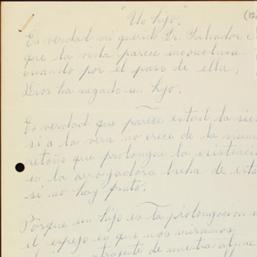 "Un hijo."
Es verdad mi querido Dr. Salvador
que la vida parece inconclusa
cuando por el paso de ella,
Dios ha negado un hijo.
Es verdad que parece estéril la
si a la vera no crece de la misma
retoño que prolongue la existencia
en la arrojadora lucha de esta
si no hay fruto.
Porque un hijo es la prolongación
el espejo en que nos miramos
de nuestra